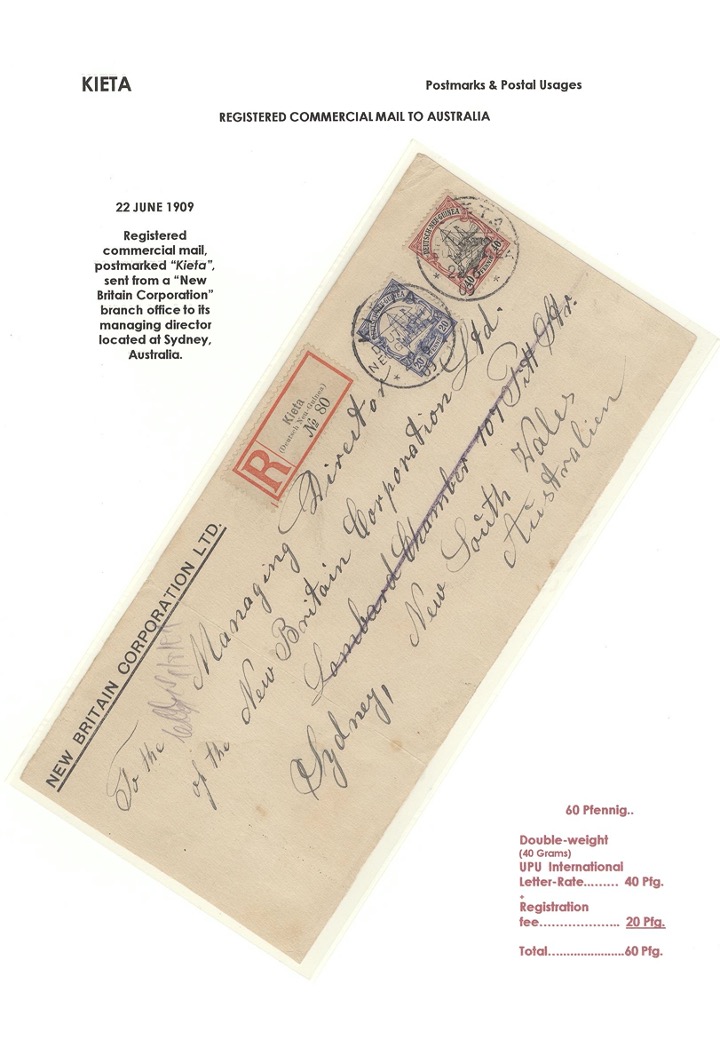 KIETA
Postmarks & Postal Usages
REGISTERED COMMERCIAL MAIL TO AUSTRALIA
22 JUNE 1909
Registered
commercial mail,
postmarked “Kieta”,
sent from a “New
Britain Corporation”
branch office to its
managing director
located at Sydney,
Australia.
DEUTSCH-NEU-GUINEA
40 PFENNIG 40
20 PFENNIG 20
R
Kieta
(Deutsch Neu-Guinea)
№ 80
NEW BRITAIN CORPORATION LTD.
To the Managing Director
of the New Britain Corporation Ltd.
Lombard Chamber 107 Pitt Str.
Sydney, New South Wales
Australien
60 Pfennig..
Double-weight
(40 Grams)
UPU International
Letter-Rate......... 40 Pfg.
+
Registration
fee.................... 20 Pfg.
Total.......................60 Pfg.